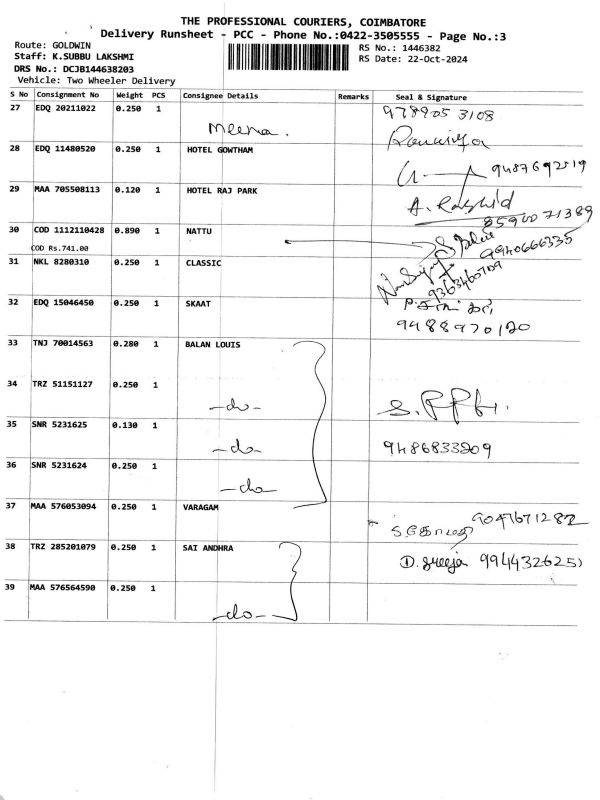 THE PROFESSIONAL COURIERS, COIMBATORE
Delivery Runsheet - PCC - Phone No.:0422-3505555 - Page No.:3
Route: GOLDWIN
Staff: K.SUBBU LAKSHMI
DRS No.: DCJB144638203
Vehicle: Two Wheeler Delivery
RS No.: 1446382
RS Date: 22-Oct-2024
S No Consignment No Weight PCS Consignee Details Remarks Seal & Signature
27 EDQ 20211022 0.250 1 Meena. 978905 3108
28 EDQ 11480520 0.250 1 HOTEL GOWTHAM 9487692519
29 MAA 705508113 0.120 1 HOTEL RAJ PARK A. Rashid 8590071389
30 COD 1112110428 0.890 1 NATTU 9940666335
COD Rs.741.00
31 NKL 8280310 0.250 1 CLASSIC 9363460709
32 EDQ 15046450 0.250 1 SKAAT 9488970120
33 TNJ 70014563 0.280 1 BALAN LOUIS
34 TRZ 51151127 0.250 1 -do-
35 SNR 5231625 0.130 1 -do- 9486833209
36 SNR 5231624 0.250 1 -do-
37 MAA 576053094 0.250 1 VARAGAM 9047671282
38 TRZ 285201079 0.250 1 SAI ANDHRA D. Sreeja 9944326251
39 MAA 576564590 0.250 1 -do-